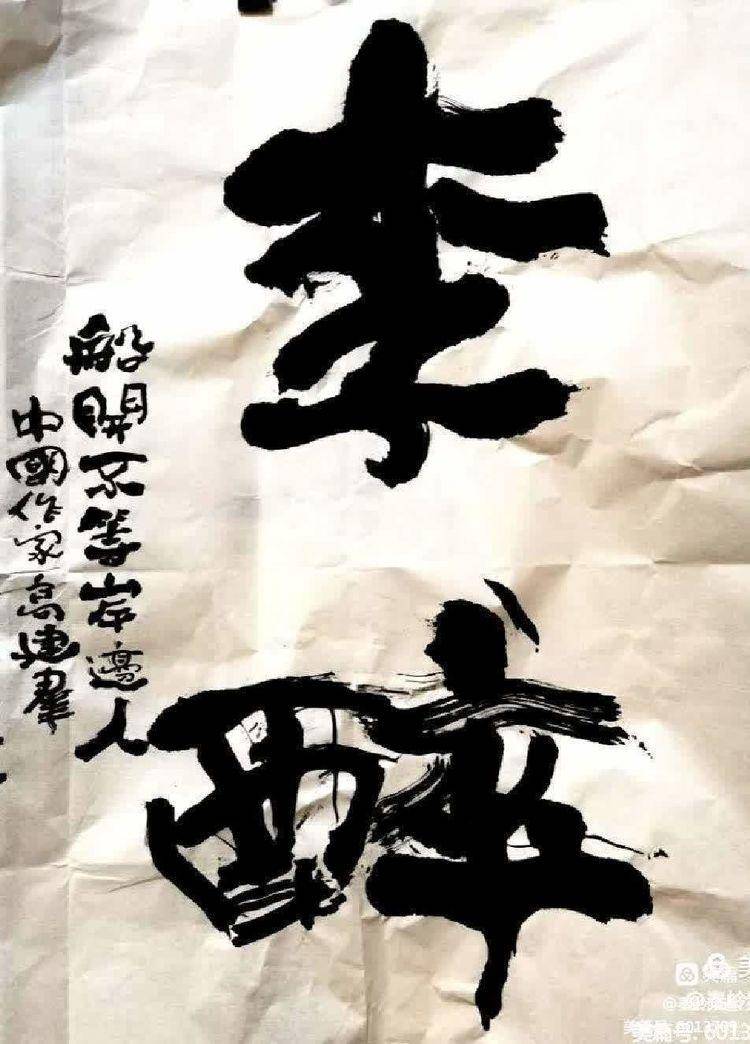 李
醉
船開不等岸邊人
中國作家高建群
美篇号: 6013